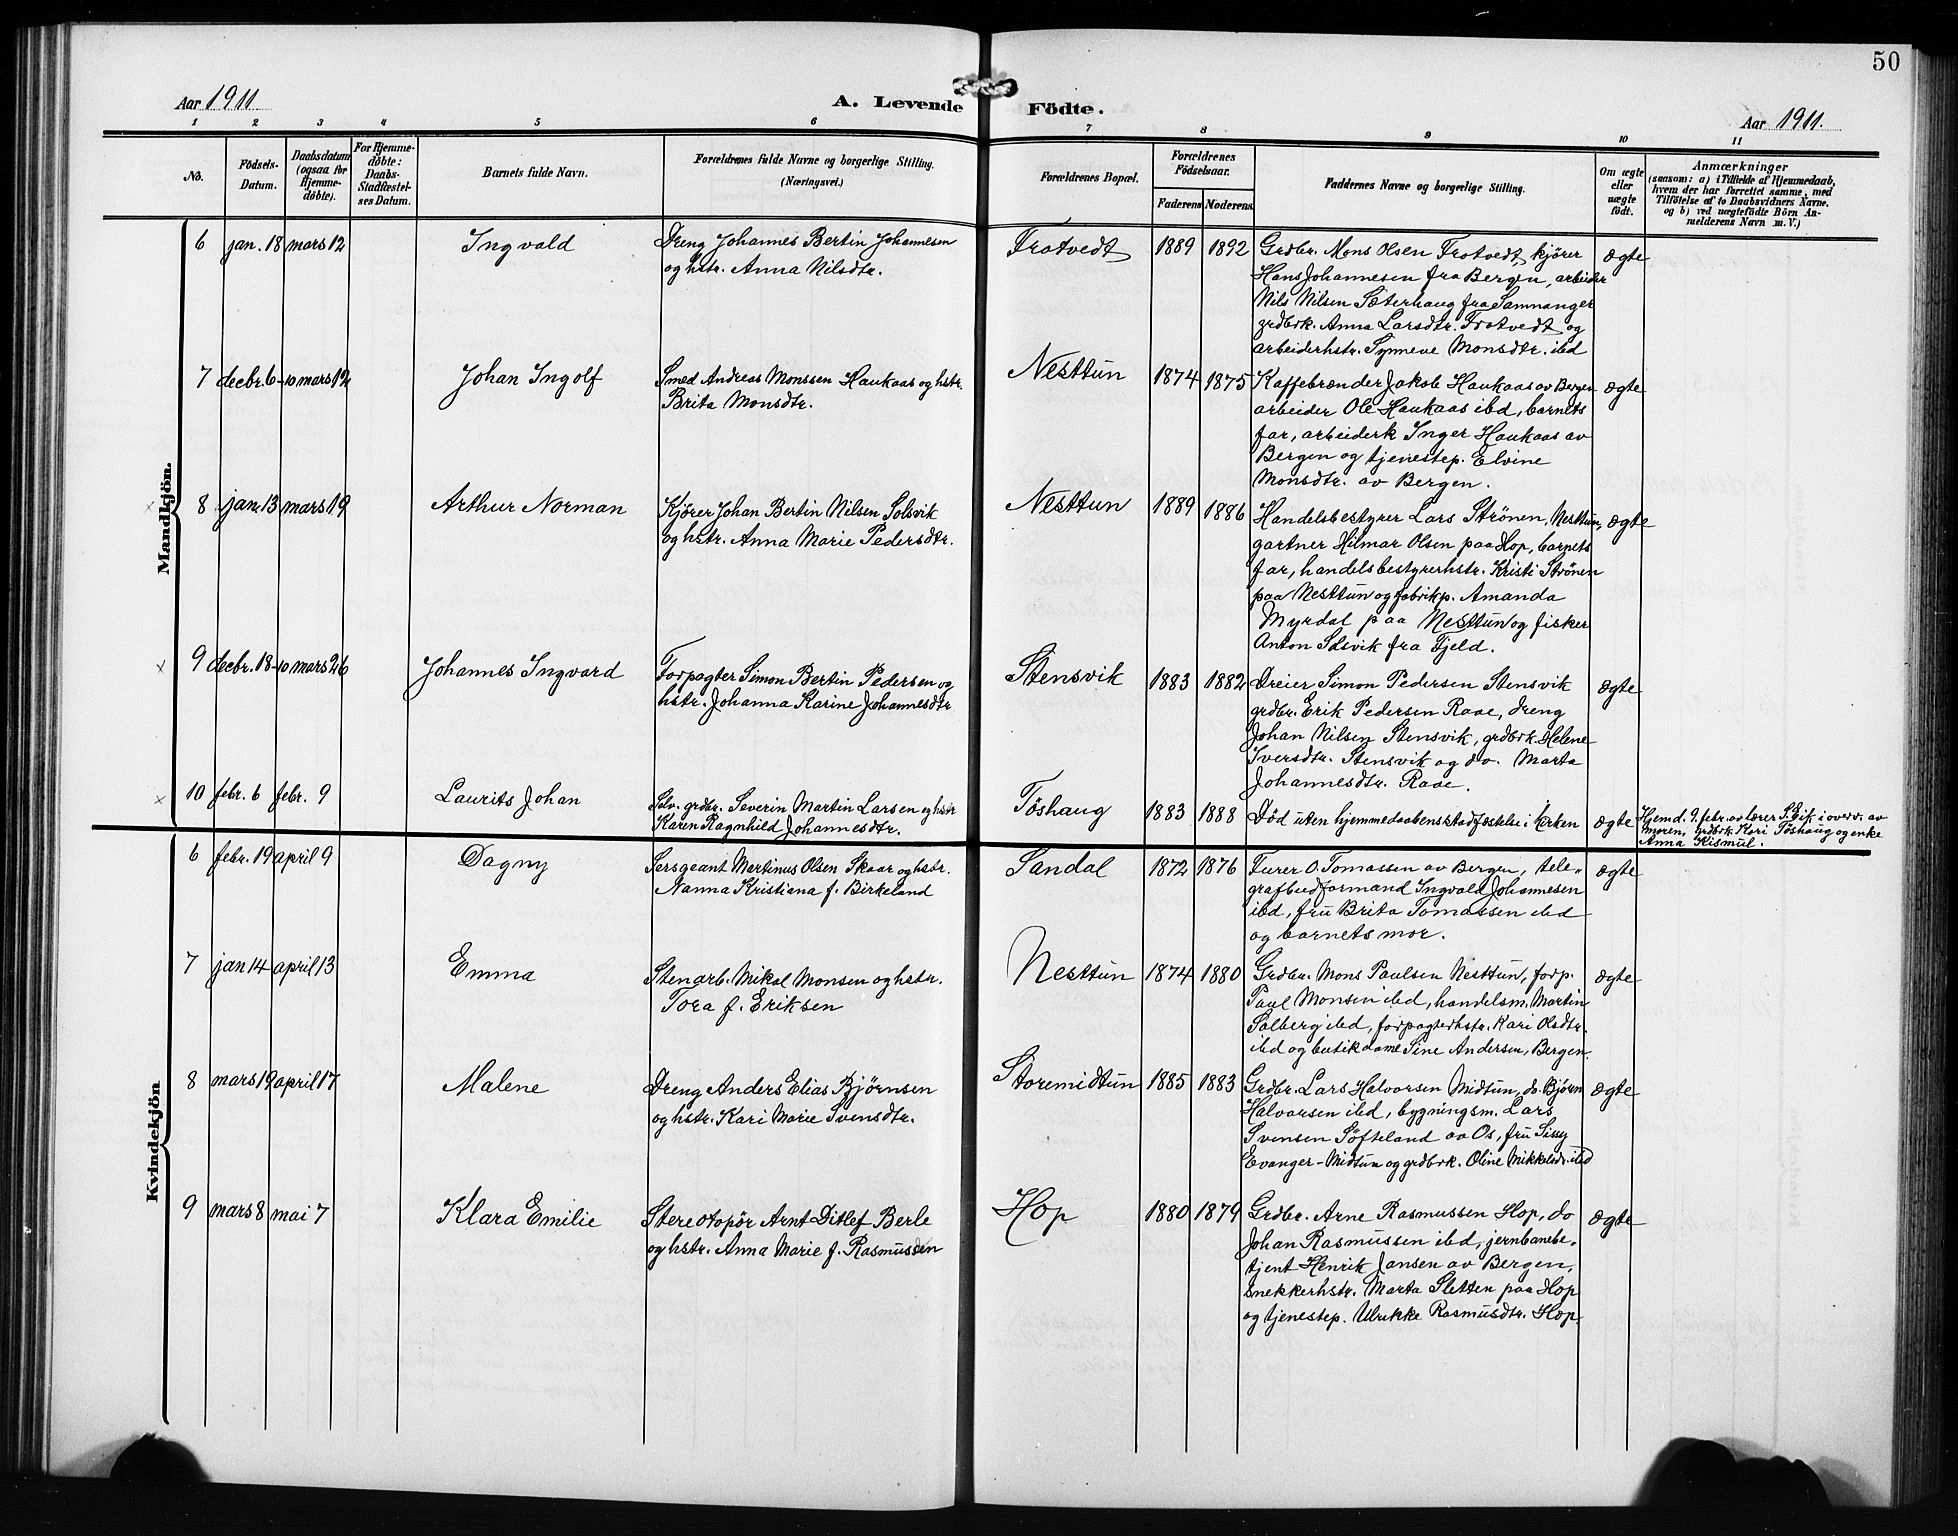 50
Aar 1911
A. Levende Födte.
Aar 1911.
1 2 3 4 5 6 7 8 9 10 11
No.
Födsels-
Datum.
Daabsdatum
(ogsaa for
Hjemme-
döbte).
For Hjemme-
döbte:
Daabs-
Stadfæstel-
ses Datum.
Barnets fulde Navn.
Forældrenes fulde Navne og borgerlige Stilling.
(Næringsvei.)
Forældrenes Bopæl.
Forældrenes
Födselsaar.
Faderens Moderens
Faddernes Navne og borgerlige Stilling.
Om ægte
eller
uægte
födt.
Anmærkninger
(saasom: a) i Tilfælde af Hjemmedaab,
hvem der har forrettet samme, med
Tilföielse af to Daabsvidners Navne.
og b) ved uægtefödte Börn An-
melderens Navn m. V.)
Mandkjön.
6 jan. 18 mars 12
Ingvald
Dreng Johannes Bertin Johannesen
og hstr. Anna Nilsdtr.
Frotvedt
1889 1892
Grdbr. Mons Olsen Frotvedt, kjører
Hans Johannesen fra Bergen, arbeider
Nils Nilsen Sæterhaug fra Samnanger
grdbrk. Anna Larsdtr. Frotvedt og
arbeiderhstr. Synneve Monsdtr. ibd
ægte
7 decbr. 6-10 mars 12
Johan Ingolf
Smed Andreas Monssen Haukaas og hstr.
Brita Monsdtr.
Nesttun
1874 1875
Kaffebrænder Jakob Haukaas av Bergen
arbeider Ole Haukaas ibd, barnets
far, arbeiderk Inger Haukaas av
Bergen og tjenestep. Elvine
Monsdtr. av Bergen.
ægte
x 8 jan. 13 mars 19
Arthur Norman
Kjører Johan Bertin Nilsen Solsvik
og hstr. Anna Marie Pedersdtr.
Nesttun
1889 1886
Handelsbestyrer Lars Strønen, Nesttun,
gartner Hilmar Olsen paa Hop, barnets
far, handelsbestyrerhstr. Kristi Strønen
paa Nesttun og fabrikp. Amanda
Myrdal paa Nesttun og fisker
Anton Solsvik fra Fjeld.
ægte
x 9 decbr. 18-10 mars 26
Johannes Ingvard
Forpagter Simon Bertin Pedersen og
hstr. Johanna Karine Johannesdtr
Stensvik
1883 1882
Dreier Simon Pedersen Stensvik
grdbr. Erik Pedersen Raae, dreng
Johan Nilsen Stensvik, grdbrk. Helene
Iversdtr. Stensvik og do. Marta
Johannesdtr. Raae.
ægte
x 10 febr. 6 febr. 9
Laurits Johan
Selv. grdbr. Severin Martin Larsen og hstr
Karen Ragnhild Johannesdtr.
Töshaug
1883 1888
Død uten hjemmedaabens stadfæstelse i kirken
ægte
Hjemd. 9. febr. av lærer S. Eik i overv. av
moren, grdbrk. Kari Töshaug og enke
Anna Kismul.
Kvindekjön
6 febr. 19 april 9
Dagny
Sersgeant Martinus Olsen Skaar og hstr.
Nanna Kristiana f. Birkeland
Sandal
1872 1876
Furer O. Tomassen av Bergen, tele-
grafbudformand Ingvald Johannesen
ibd, fru Brita Tomassen ibd
og barnets mor.
ægte
7 jan 14 april 13
Emma
Stenarb. Mikal Monsen og hstr.
Tora f. Eriksen
Nesttun
1874 1880
Grdbr. Mons Paulsen Nesttun, forp.
Paul Monsen ibd, handelsm. Martin
Solberg ibd, forpagterhstr. Kari Olsdtr.
ibd og butikdame Sine Andersen, Bergen.
ægte
8 mars 19 april 17
Malene
Dreng Anders Elias Bjørnsen
og hstr. Kari Marie Svensdtr.
Storemidtun
1885 1883
Grdbr. Lars Halvorsen Midtun, do Bjørn
Halvorsen ibd, bygningsm. Lars
Svensen Söfteland av Os, fru Sissy
Evanger-Midtun og grdbrk. Oline Mikkelsdr. ibd
ægte
9 mars 8 mai 7
Klara Emilie
Stereotopör Arnt Ditlef Berle
og hstr. Anna Marie f. Rasmussen
Hop
1880 1879
Grdbr. Arne Rasmussen Hop, do
Johan Rasmussen ibd, jernbanebe-
tjent Henrik Jansen av Bergen,
snekkerhstr. Marta Sletten paa Hop
og tjenestep. Ulrikke Rasmusdtr. Hop.
ægte